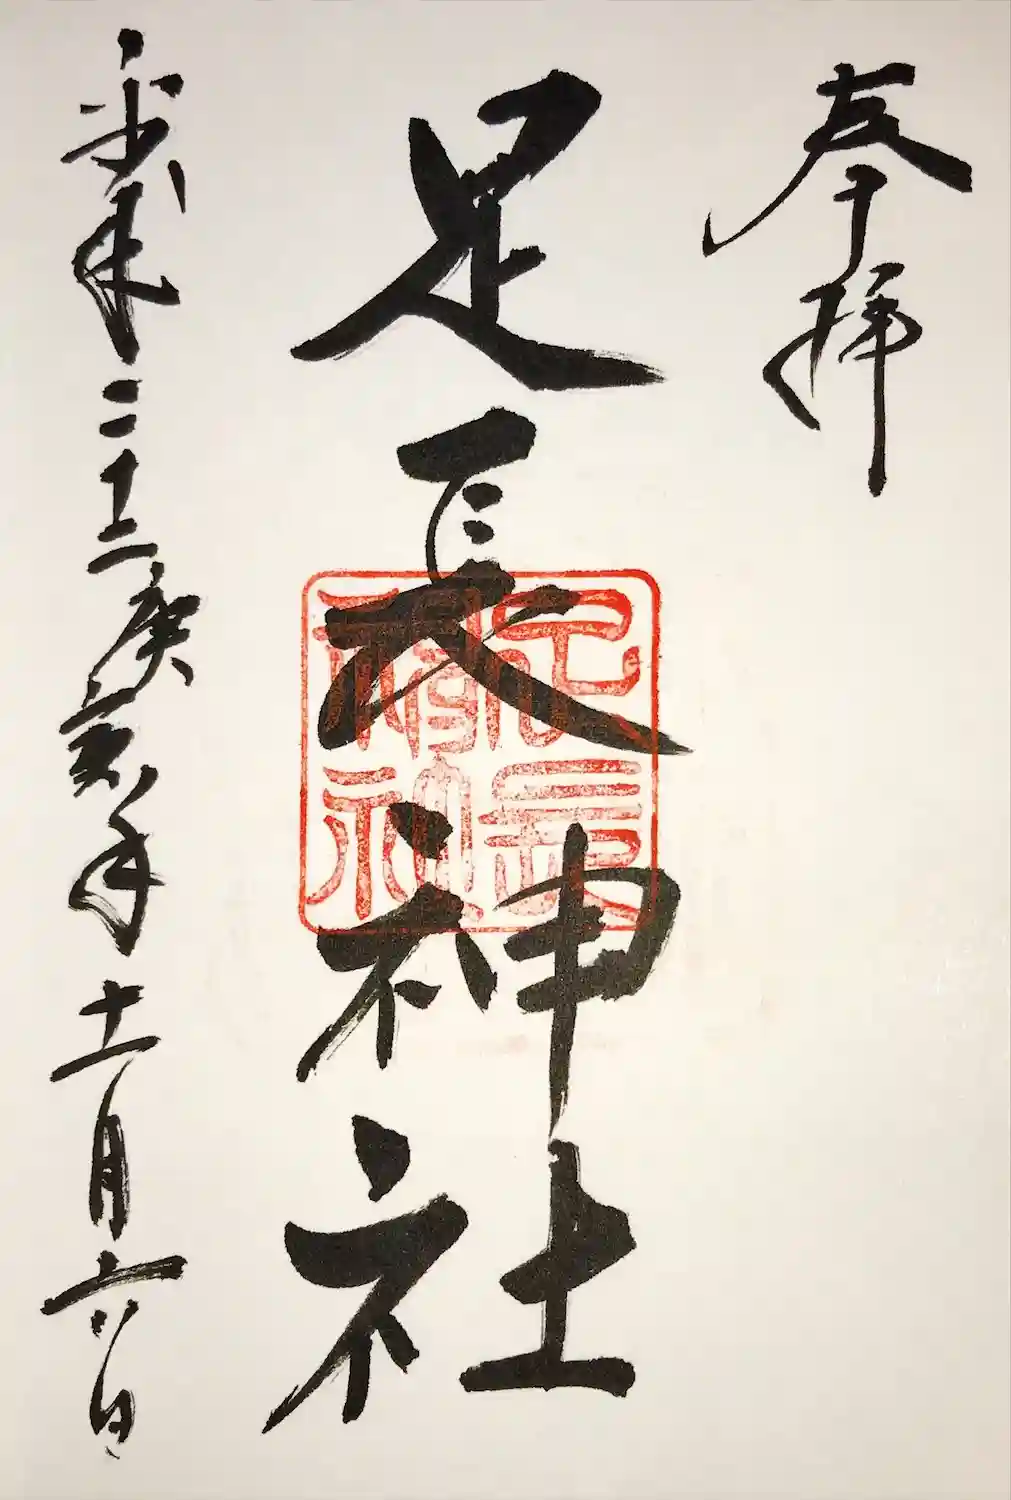 奉拝
足長神社
足長
神社
平成二十二庚寅年十一月六日